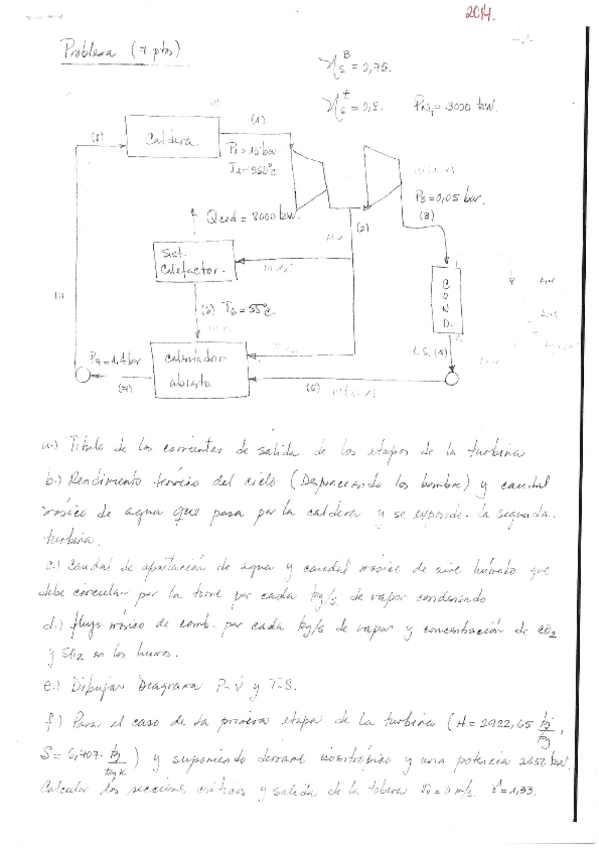 2014.
Problema (7 ptos)
η_S^B = 0,75.
η_S^t = 0,8. P_N1 = 3000 kW.
(8)
Caldera.
(1)
P1 = 15 bar
T1 = 250°C
P3 = 0,05 bar.
(3)
Qced = 8000 kW.
(2)
Sist.
Calefactor.
(6) T6 = 55°C.
C
O
N
D.
L.S. (4)
P7 = 1,4 bar
calentador
abierto.
(7)
(5)
a.) Título de las corrientes de salida de las etapas de la turbina
b.) Rendimiento térmico del ciclo (Despreciando las bombas) y caudal
másico de agua que pasa por la caldera y se expande la segunda
turbina.
c.) Caudal de aportación de agua y caudal másico de aire húmedo que
debe circular por la torre por cada kg/s de vapor condensado
d.) flujo másico de comb. por cada kg/s de vapor y concentración de CO2
y SO2 en los humos.
e.) Dibujar Diagrama P-V y T-S.
f.) Para el caso de la primera etapa de la turbina (H = 2922,65 kJ/kg,
S = 6,707 kJ/kg K) y suponiendo derrame isoentrópico y una potencia 2450 kW.
Calcular las secciones críticas y salida de la tobera V0 = 0 m/s. γ = 1,33.